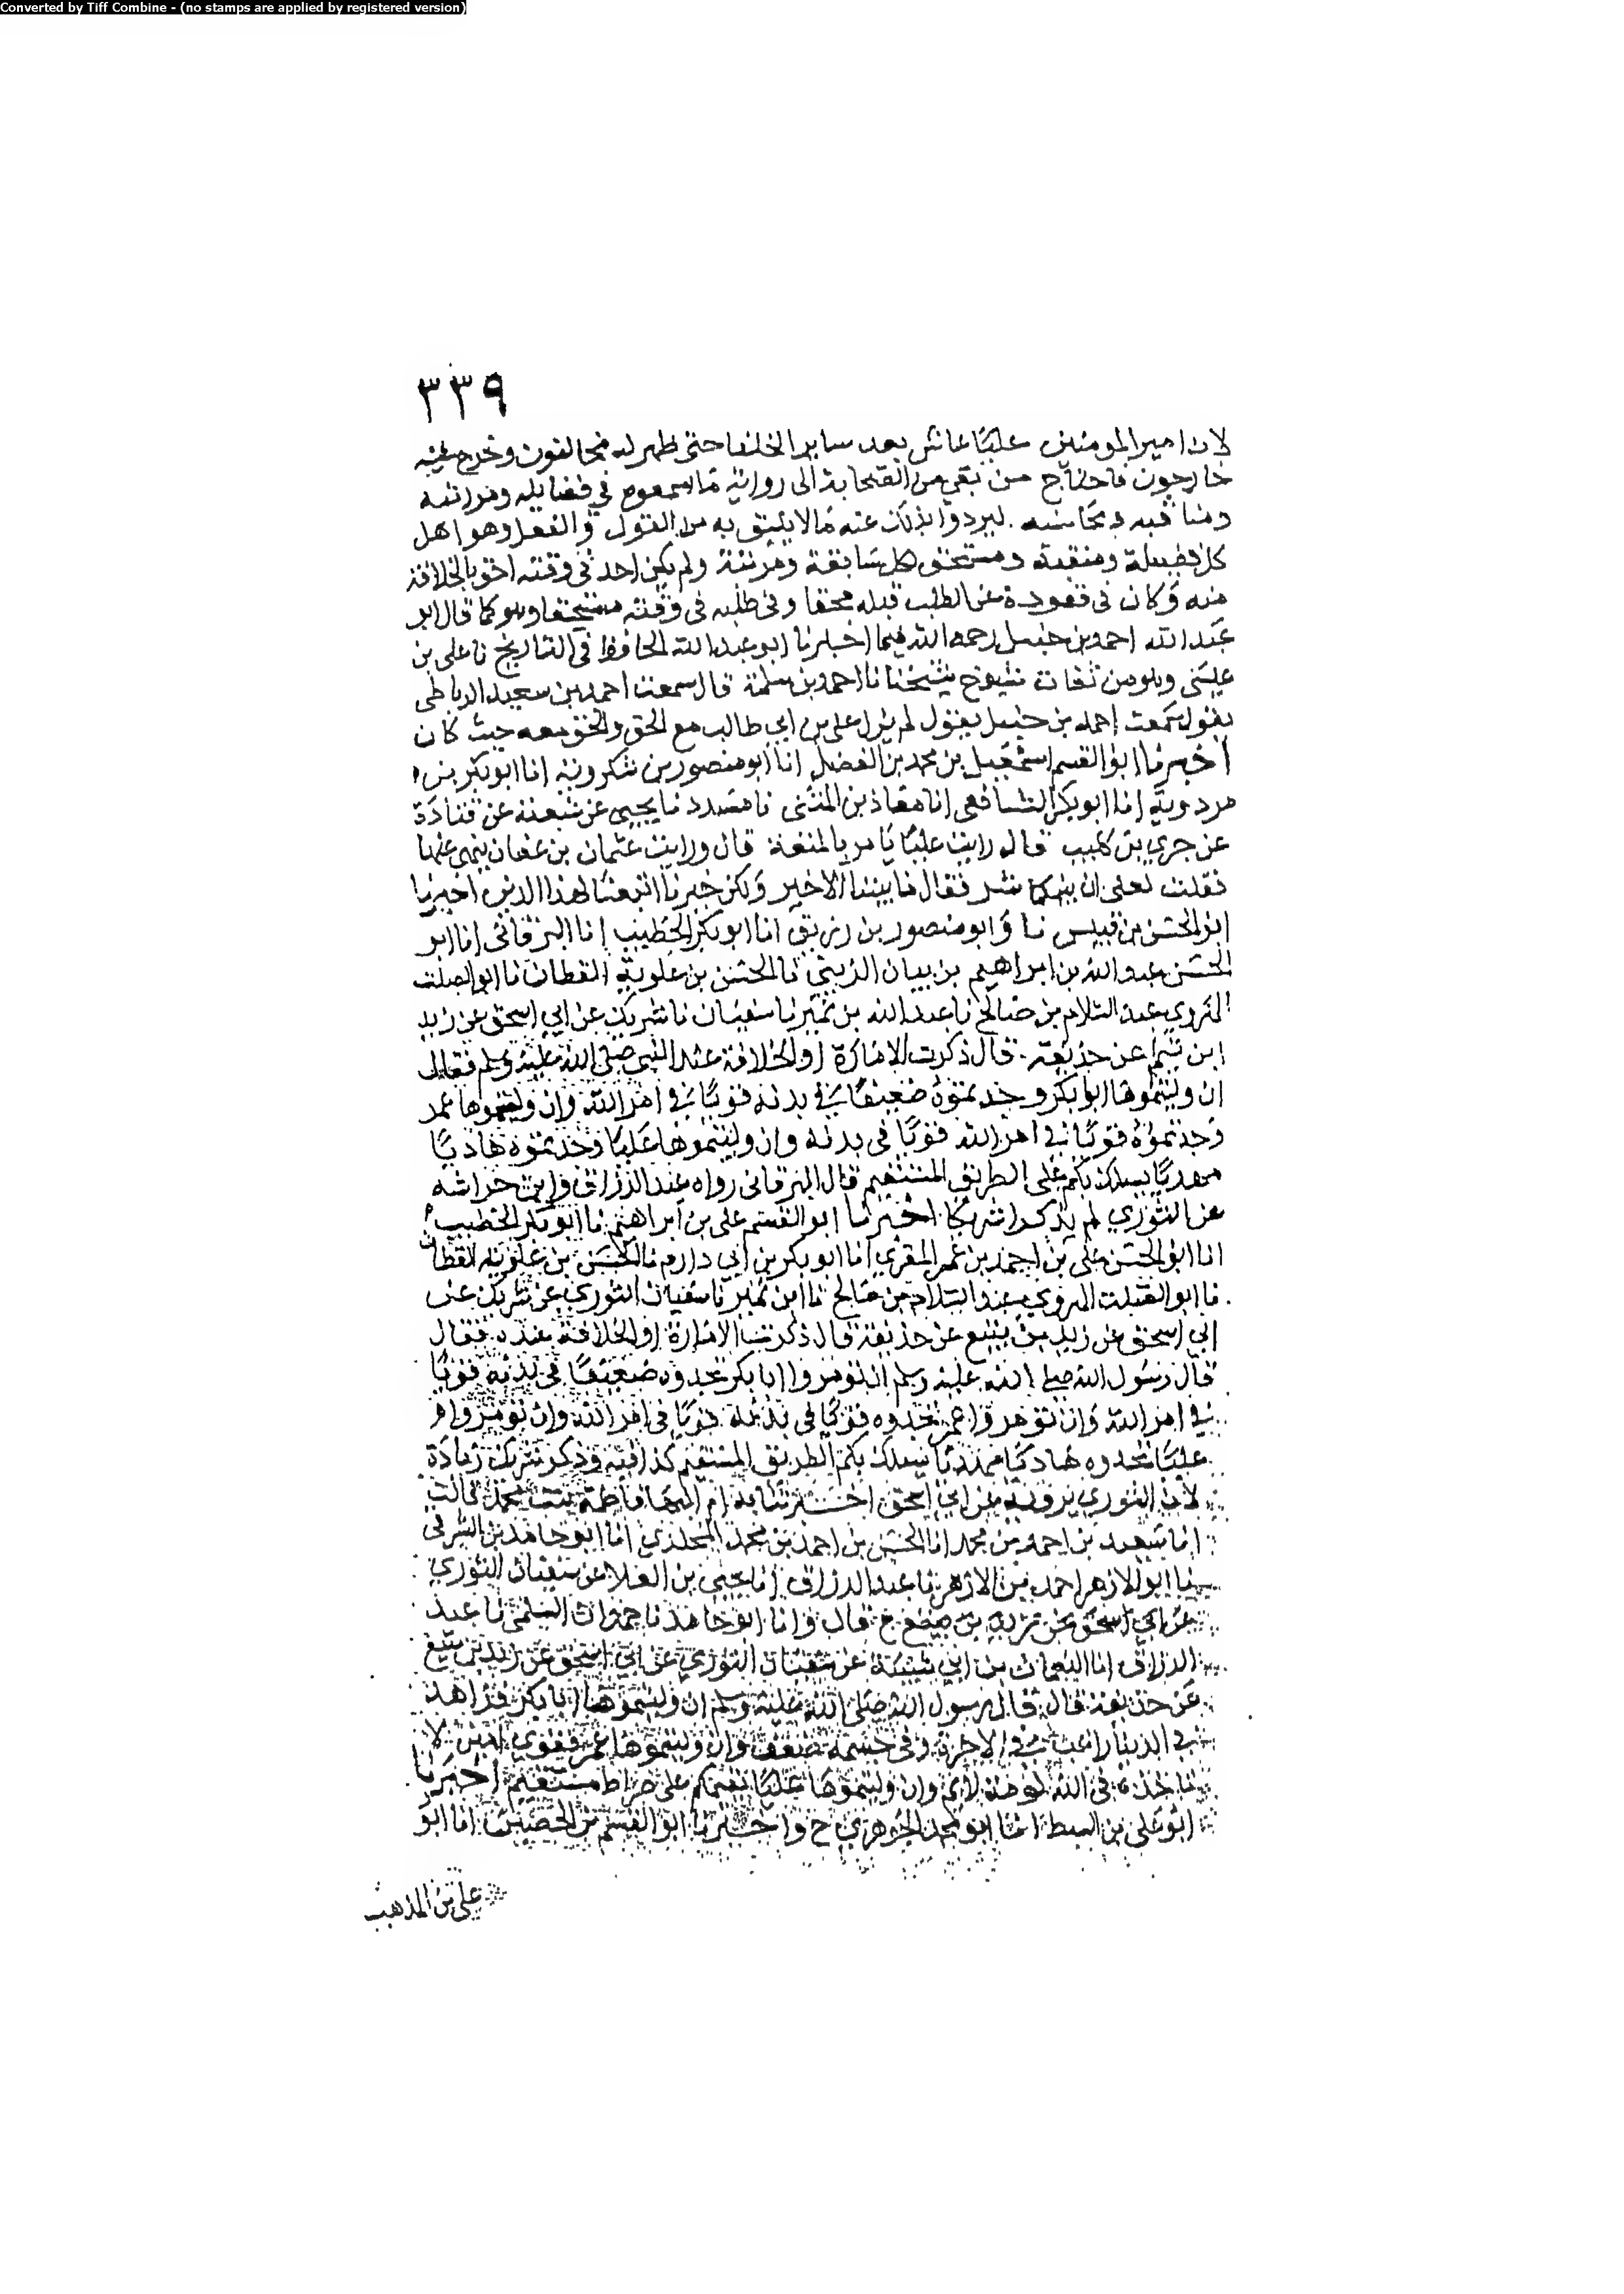 Converted by Tiff Combine - (no stamps are applied by registered version)
٣٣٩
لان امير المومنين عليًا عاش بعد ساير الخلفا حتى ظهر له مخالفون وخرج عليه
خارجون فاحتاج من بقي من الصحابة الى رواية ما سمعوه في فضايله ومراتبه
ومناقبه ومحاسنه ليردوا بذلك عنه ما لا يليق به من القول والفعل وهو اهل
كل فضيلة ومنقبة ومستحق لكل سابقة ومرتبة ولم يكن احد في وقته احق بالخلافة
منه وكان في قعوده عن الطلب قبله محقا وفي طلبه في وقته مستحقا وهو كما قال ابو
عبد الله احمد بن حنبل رحمه الله فيما اخبرنا ابو عبد الله الحافظ في التاريخ نا علي بن
عيسى وهو من ثقات شيوخ شيخنا نا احمد بن سلمة قال سمعت احمد بن سعيد الرباطي
يقول سمعت احمد بن حنبل يقول لم يزل علي بن ابي طالب مع الحق والحق معه حيث كان
اخبرنا ابو القسم اسمعيل بن محمد بن الفضل انا ابو منصور بن شكرويه انا ابو بكر بن
مردويه انا ابو بكر الشافعي انا معاذ بن المثنى نا مسدد نا يحيى عن شعبة عن قتادة
عن جري بن كليب قال رايت عليًا يامر بالمتعة قال ورايت عثمان بن عفان ينهى عنها
فقلت لعلي ان بينكما شر فقال ما بيننا الا خير ولكن خيرنا اتبعنا لهذا الدين اخبرنا
ابو الحسن بن قبيس نا وابو منصور بن زريق انا ابو بكر الخطيب انا البرقاني انا ابو
الحسن عبد الله بن ابراهيم بن بيان الزبيبي نا الحسن بن علويه القطان نا ابو الصلت
الهروي عبد السلام بن صالح نا عبد الله بن نمير نا سفيان نا شريك عن ابي اسحق عن زيد
ابن يثيع عن حذيفة قال ذكرت الامارة او الخلافة عند النبي صلى الله عليه وسلم فقال
ان وليتموها ابا بكر وجدتموه ضعيفًا في بدنه قويًا في امر الله وان وليتموها عمر
وجدتموه قويًا في امر الله قويًا في بدنه وان وليتموها عليًا وجدتموه هاديًا
مهديًا يسلك بكم على الطريق المستقيم قال البرقاني رواه عبد الرزاق وابن هراسة
عن الثوري لم يذكرا شريكًا اخبرنا ابو القسم علي بن ابراهيم نا ابو بكر الخطيب
انا ابو الحسن علي بن احمد بن عمر المقري انا ابو بكر بن ابي دارم نا الحسن بن علويه القطان
نا ابو الصلت الهروي عبد السلام بن صالح نا ابن نمير نا سفيان الثوري عن شريك عن
ابي اسحق عن زيد بن يثيع عن حذيفة قال ذكرت الامارة او الخلافة عنده فقال
قال رسول الله صلى الله عليه وسلم ان تومروا ابا بكر تجدوه ضعيفًا في بدنه قويًا
في امر الله وان تومروا عمر تجدوه قويًا في بدنه قويًا في امر الله وان تومروا
عليًا تجدوه هاديًا مهديًا يسلك بكم الطريق المستقيم كذا فيه وذكر شريك زيادة
لان الثوري يرويه عن ابي اسحق اخبرتنا به ام البها فاطمة بنت محمد قالت
انا سعيد بن احمد بن محمد انا الحسن بن احمد بن محمد المخلدي انا ابو حامد بن الشرقي
نا ابو الازهر احمد بن الازهر نا عبد الرزاق انا يحيى بن العلا عن سفيان الثوري
عن ابي اسحق عن زيد بن يثيع ح قال وانا ابو حامد نا حمدان السلمي نا عبد
الرزاق انا النعمان بن ابي شيبة عن سفيان الثوري عن ابي اسحق عن زيد بن يثيع
عن حذيفة قال قال رسول الله صلى الله عليه وسلم ان وليتموها ابا بكر فزاهد
في الدنيا راغب في الاخرة وفي جسمه ضعف وان وليتموها عمر فقوي امين لا
تاخذه في الله لومة لايم وان وليتموها عليًا يقيمكم على صراط مستقيم اخبرنا
ابو علي بن السبط انا ابو محمد الجوهري ح واخبرنا ابو القسم بن الحصين انا ابو
علي بن المذهب